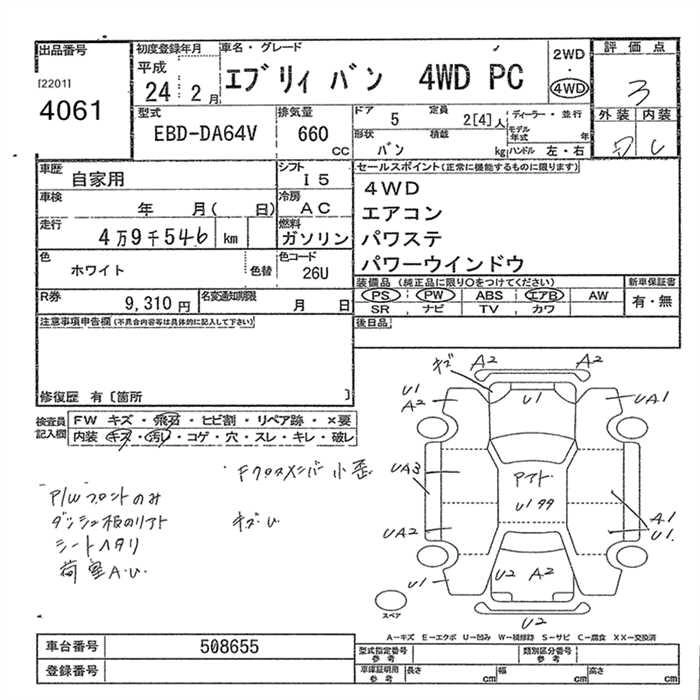 出品番号
[2201]
4061
初度登録年月
平成
24 2 月
車名・グレード
エブリィ バン 4WD PC
2WD
・
4WD
評価点
3
外装 内装
D C
型式
EBD-DA64V
排気量
660
CC
ドア 5 定員 2[4] 人
形状 バン 積載 kg
ディーラー・並行
モデル年式 年
ハンドル 左・右
車歴
自家用
シフト
I 5
車検
年 月( 日)
冷房
AC
走行
4万9千546 km
燃料
ガソリン
色
ホワイト
色替
色コード
26U
R券
9,310 円
名変通知期限
月 日
セールスポイント(正常に機能するものに限ります)
4WD
エアコン
パワステ
パワーウインドウ
装備品 (純正品に限り○をつけてください)
PS PW ABS エアB AW
SR ナビ TV カワ
新車保証書
有・無
後日品
注意事項申告欄(不具合内容等は具体的に記入して下さい)
修復歴 有 〔箇所 〕
検査員記入欄
FW キズ・飛石・ヒビ割・リペア跡・×要
内装・キズ・汚レ・コゲ・穴・スレ・キレ・破レ
Fクロスメンバー小歪
P/Wフロントのみ
ダッシュ板のリアト
キズU
シートヘタリ
荷室A.U.
キズ A2 A2
U1
A2
U1
UA1
UA3
アアト
U1タタ
UA2
A1
U1
U1
U2 A2
U2
スペア
A-キズ E-エクボ U-凹み W-補修跡 S-サビ C-腐食 XX-交換済
車台番号
508655
登録番号
型式指定番号
参考
類別区分番号
参考
車庫証明用
参考
長さ cm 幅 cm 高さ cm